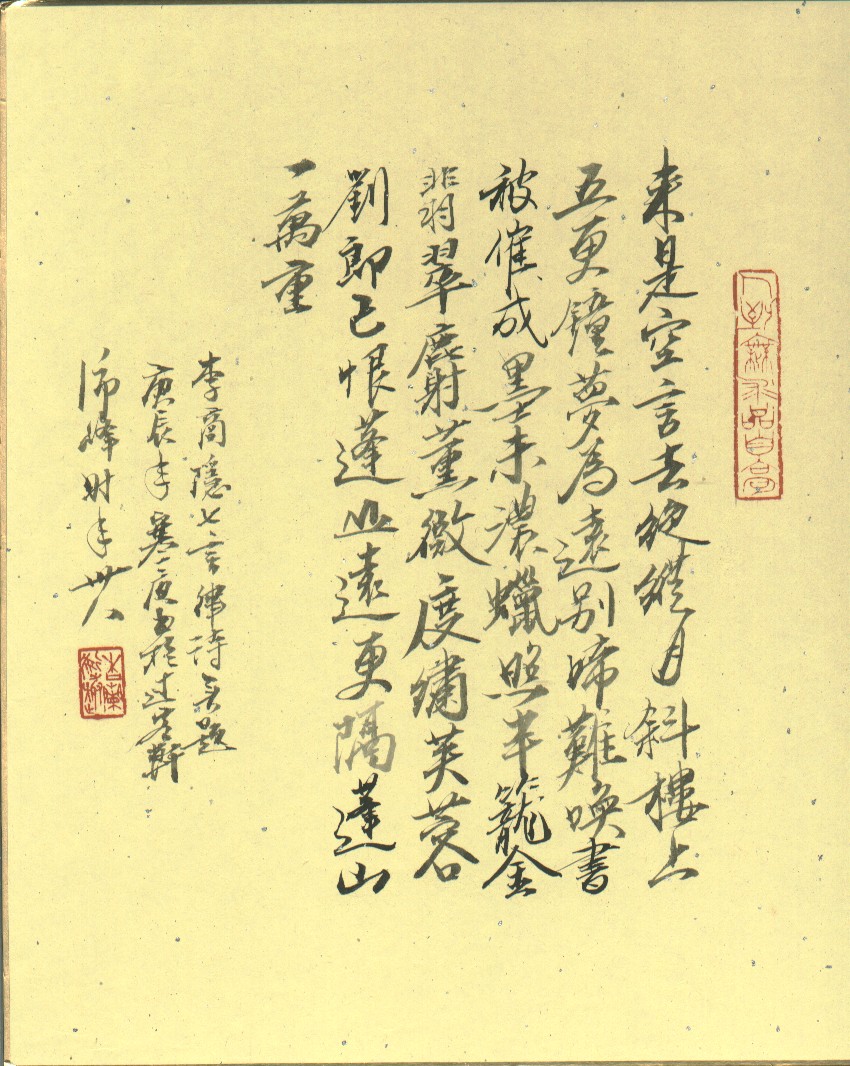 人到無求品自高
来是空言去絶蹤月斜樓上
五更鐘夢為遠別啼難喚書
被催成墨未濃蠟照半籠金
翡翠麝薰微度繡芙蓉
劉郎已恨蓬山遠更隔蓬山
一萬重
李商隱七言律詩無題
庚辰年
峰時年卅八